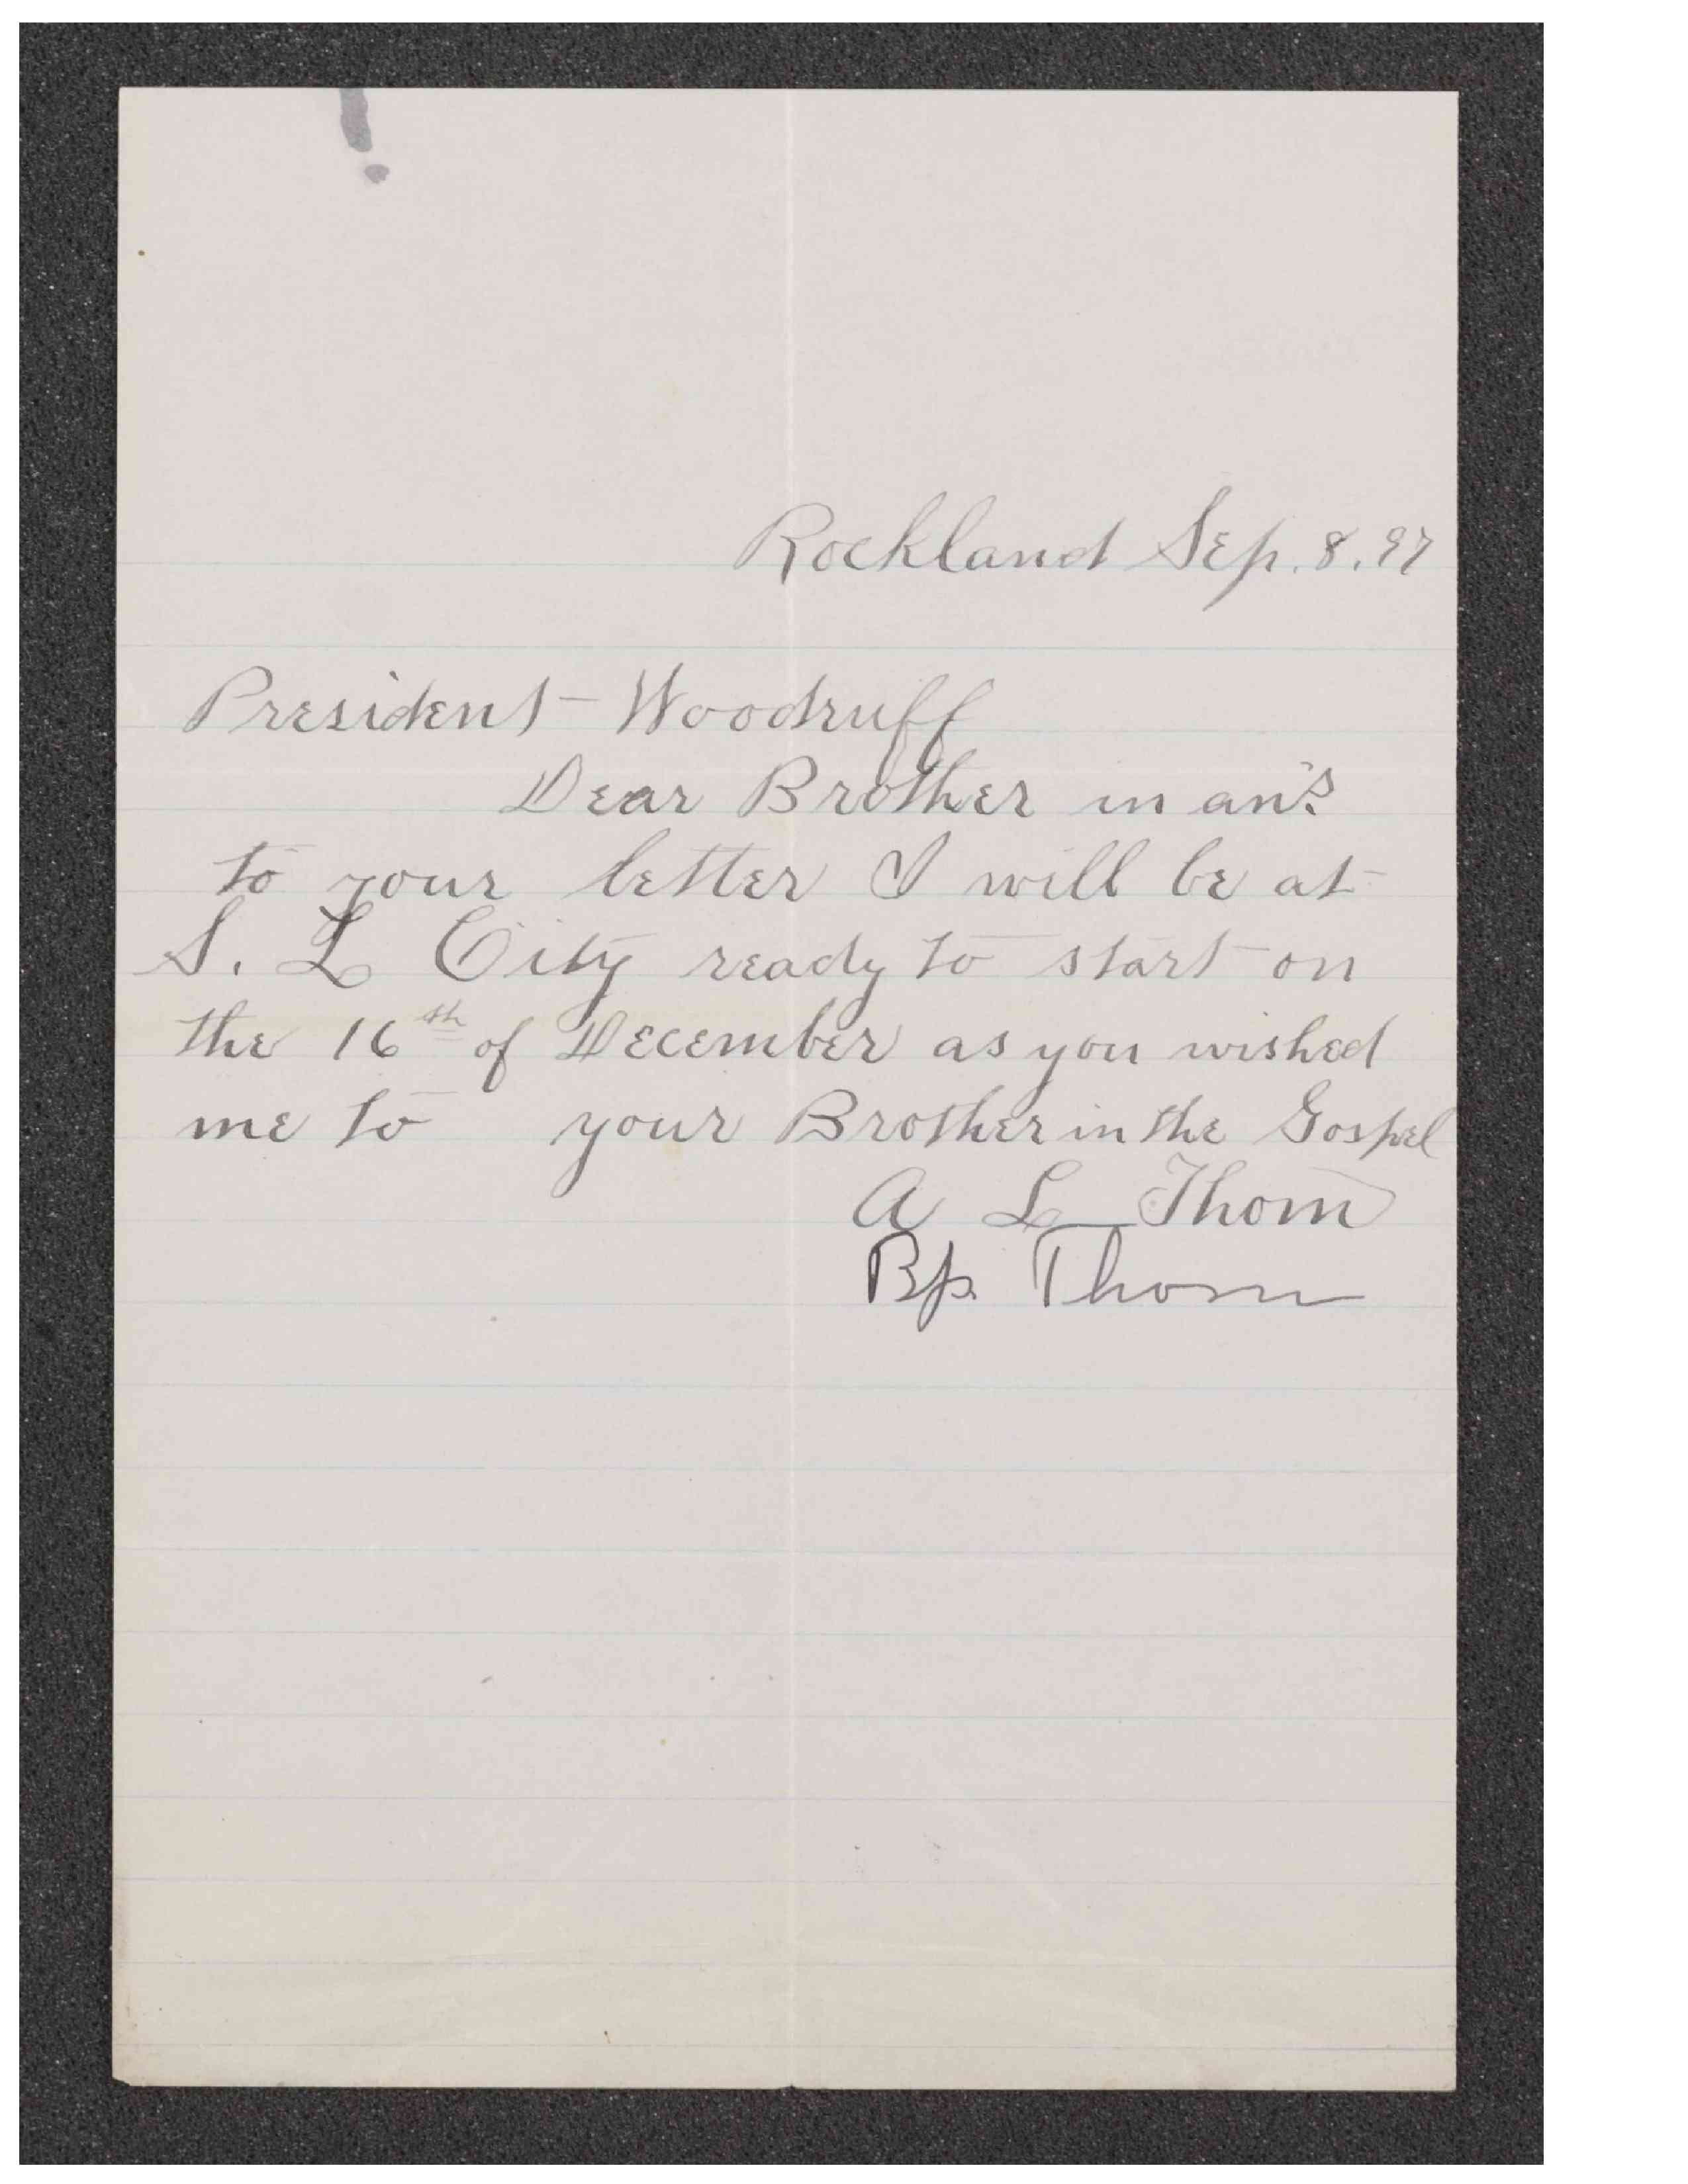 Rockland Sep. 8. 97
President Woodruff
Dear Brother in ans
to your letter I will be at
S. L City ready to start on
the 16th of December as you wished
me to your Brother in the Gospel
A L Thom
Bp. Thom